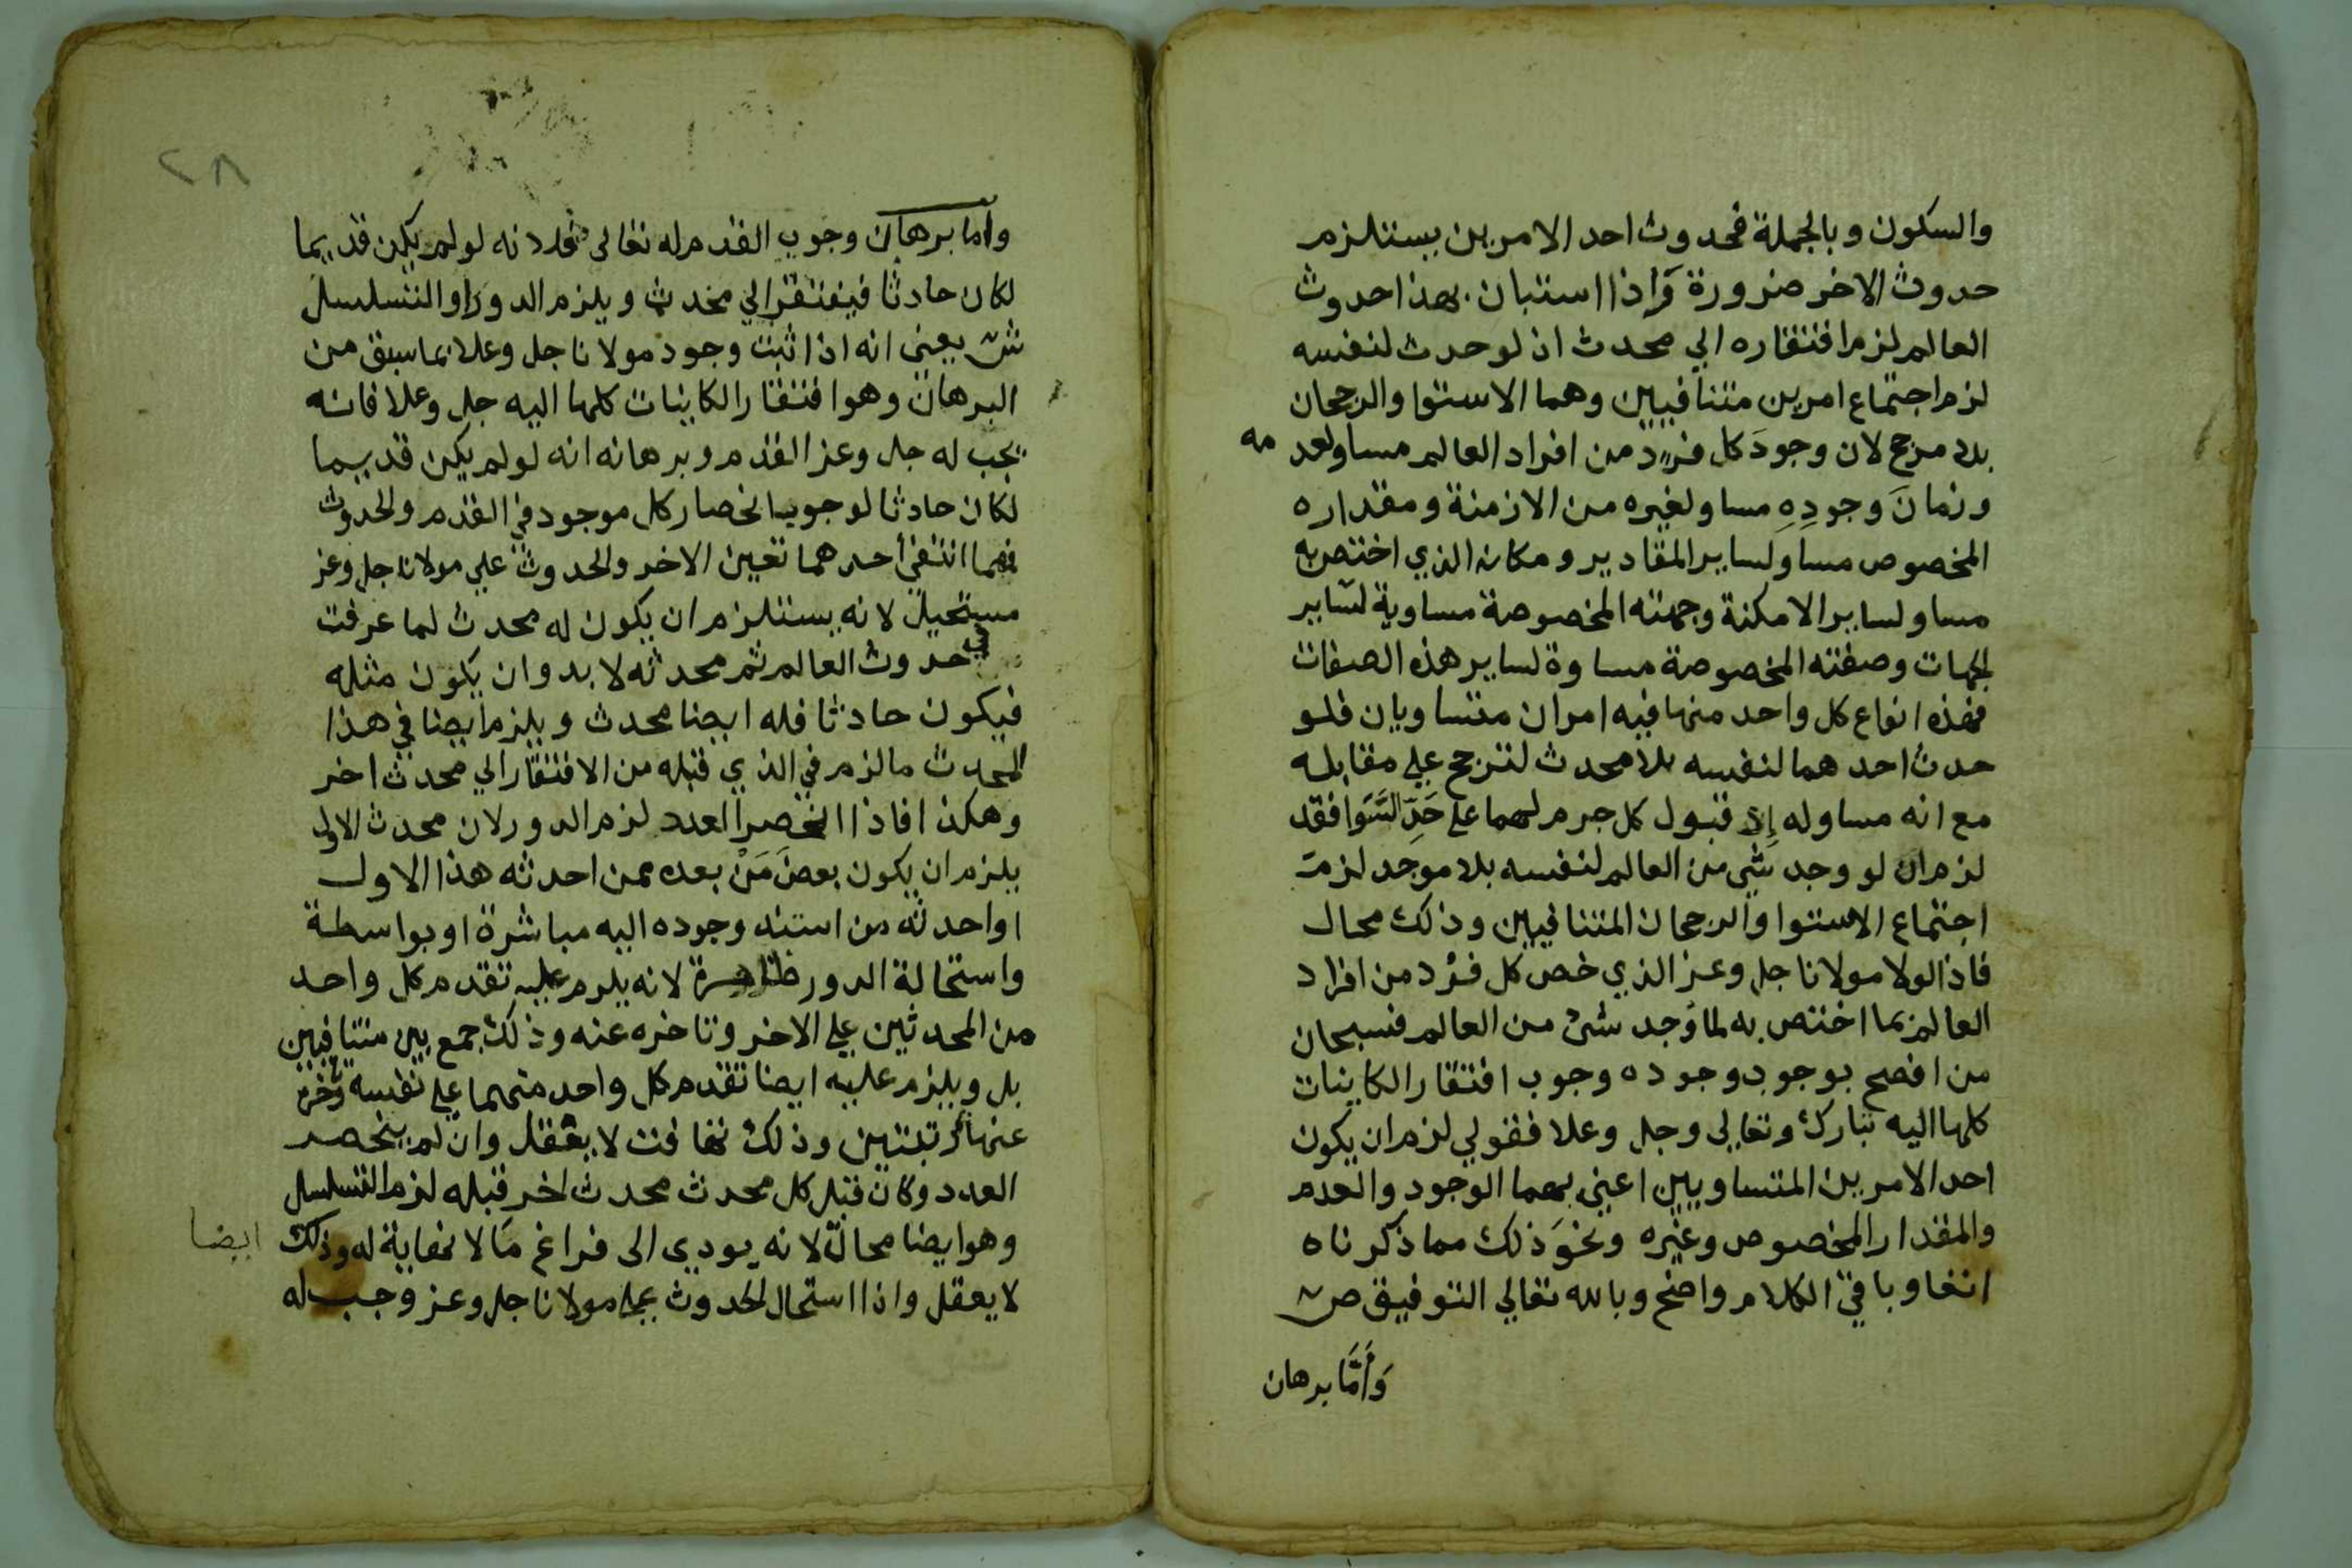 والسكون وبالجملة فحدوث احد الامرين يستلزم
حدوث الاخر ضرورة وَاذا استبان بهذا حدوث
العالم لزم افتقاره الي محدث اذ لو حدث لنفسه
لزم اجتماع امرين متنافيين وهما الاستوا والرجحان
بلا مرجح لان وجودَ كل فردٍ من افراد العالم مساو لعدمه
وزمانَ وجودِهِ مساو لغيره من الازمنة ومقداره
المخصوص مساو لساير المقادير ومكانه الذي اختص به
مساو لساير الامكنة وجهته المخصوصة مساوية لساير
الجهات وصفته المخصوصة مساوة لساير هذه الصفات
فهذه انواع كل واحد منها فيه امران متساويان فلو
حدث احدهما لنفسه بلا محدث لترجح علي مقابله
مع انه مساو له إذ قبول كل جرم لهما علي حَدِّ السَّوا فقد
لزم ان لو وجد شي من العالم لنفسه بلا موجد لزم
اجتماع الاستوا والرجحان المتنافيين وذلك محال
فاذا لولا مولانا جل وعز الذي خص كل فرد من افراد
العالم بما اختص به لما وُجد شئ من العالم فسبحان
من افصح بوجوب وجوده وجوب افتقار الكاينات
كلها اليه تبارك وتعالي وجل وعلا فقولي لزم ان يكون
احد الامرين المتساويين اعني بهما الوجود والعدم
والمقدار المخصوص وغيره ونحوَ ذلك مما ذكرناه
انفا وباقي الكلام واضح وبالله تعالي التوفيق ص
وَأمَّا برهان
٢٨
وأما برهان وجوب القدم له تعالى فلانه لو لم يكن قديما
لكان حادثا فيفتقر الي محدث ويلزم الدور او التسلسل
ش يعني انه اذا ثبت وجود مولانا جل وعلا بما سبق من
البرهان وهو افتقار الكاينات كلها اليه جل وعلا فانه
يجب له جل وعز القدم وبرهانه انه لو لم يكن قديما
لكان حادثا لوجوب انحصار كل موجود في القدم والحدوث
فمهما انتفى أحدهما تعين الاخر والحدوث علي مولانا جل وعز
مستحيل لانه يستلزم ان يكون له محدث لما عرفت
في حدوث العالم ثم محدثه لا بد وان يكون مثله
فيكون حادثا فله ايضا محدث ويلزم ايضا في هذا
المحدث ما لزم في الذي قبله من الافتقار الي محدث اخر
وهكذا فاذا انحصر العدد لزم الدور لان محدث الاول
يلزم ان يكون بعضَ مَنْ بعده ممن احدثه هذا الاول
او احدثه من استند وجوده اليه مباشرة او بواسطة
واستحالة الدور ظاهرة لانه يلزم عليه تقدم كل واحد
من المحدثين علي الاخر وتاخره عنه وذلك جمع بين متنافيين
بل ويلزم عليه ايضا تقدم كل واحد منهما علي نفسه وتاخره
عنها بمرتبتين وذلك تهافت لا يعقل وان لم ينحصر
العدد وكان قبل كل محدث محدث اخر قبله لزم التسلسل
وهو ايضا محال لانه يودي الى فراغ ما لا نهاية له وذلك ايضا
لا يعقل واذا استحال الحدوث علي مولانا جل وعز وجب له